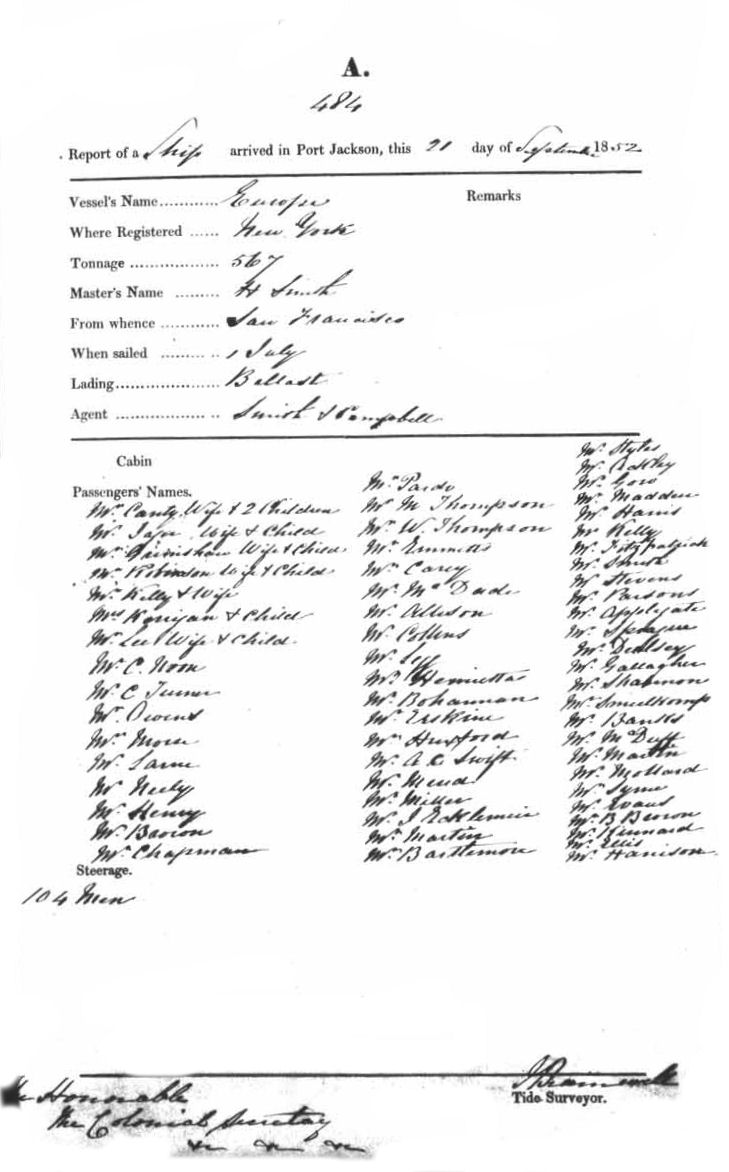 A.
484
Report of a Ship arrived in Port Jackson, this 21 day of September 1852
Vessel's Name............ Europa
Remarks
Where Registered ...... New York
Tonnage .................. 567
Master's Name ......... H Smith
From whence ............ San Francisco
When sailed ......... .. 1 July
Lading..................... Ballast
Agent .................. .. Smith & Campbell
Cabin
Passengers' Names.
Mr. Canty Wife & 2 Children
Mr. Wife & Child
Mr. Grimshaw Wife & Child
Mr. Robinson Wife & Child
Mr. Kelly & Wife
Mrs Kerrigan & Child
Mr. Lee Wife & Child
Mr. C. Noon
Mr. C Turner
Mr. Owens
Mr. Morse
Mr.
Mr Neely
Mr. Henry
Mr. Brown
Mr. Chapman
Mr Pardo
Mr M Thompson
Mr. W. Thompson
Mr. Emmetts
Mr. Carey
Mr. Mc Dade
Mr. Allison
Mr. Collins
Mr.
Mr. Henrietta
Mr. Bohannan
Mr. Erskine
Mr Huxford
Mr. A. C. Swift
Mr. Mend
Mr. Miller
Mr. J
Mr. Martin
Mr. Bartlemore
Mr. Styles
Mr. Ackley
Mr. Gow
Mr. Madden
Mr. Harris
Mr Kelly
Mr. Fitzpatrick
Mr. Smith
Mr Stevens
Mr. Parsons
Mr. Applegate
Mr. Sprague
Mr.
Mr. Gallagher
Mr. Shannon
Mr.
Mr. Banks
Mr. Mc Duff
Mr. Martin
Mr. Mollard
Mr. Syme
Mr. Evans
Mr. B Brown
Mr. Kinnard
Mr. Ellis
Mr. Harrison
Steerage.
104 Men
Tide Surveyor.
The Honorable
The Colonial Secretary
&c &c &c